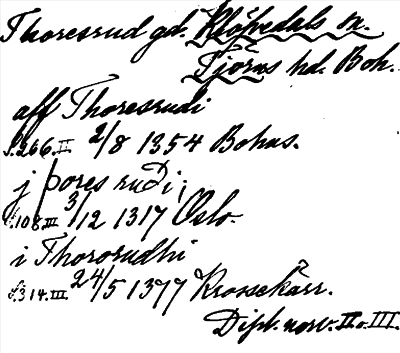 Thoresrud gd. Klövedals sn.
Tjörns hd. Boh.
aff Thoresrudi
s.266.II 2/8 1354 Bohus.
j þores ruði;
s.108.III 3/12 1317 Oslo.
i Thororudhi
s.314.III. 24/5 1377 Krossekärr.
Dipl. norv. II o. III.